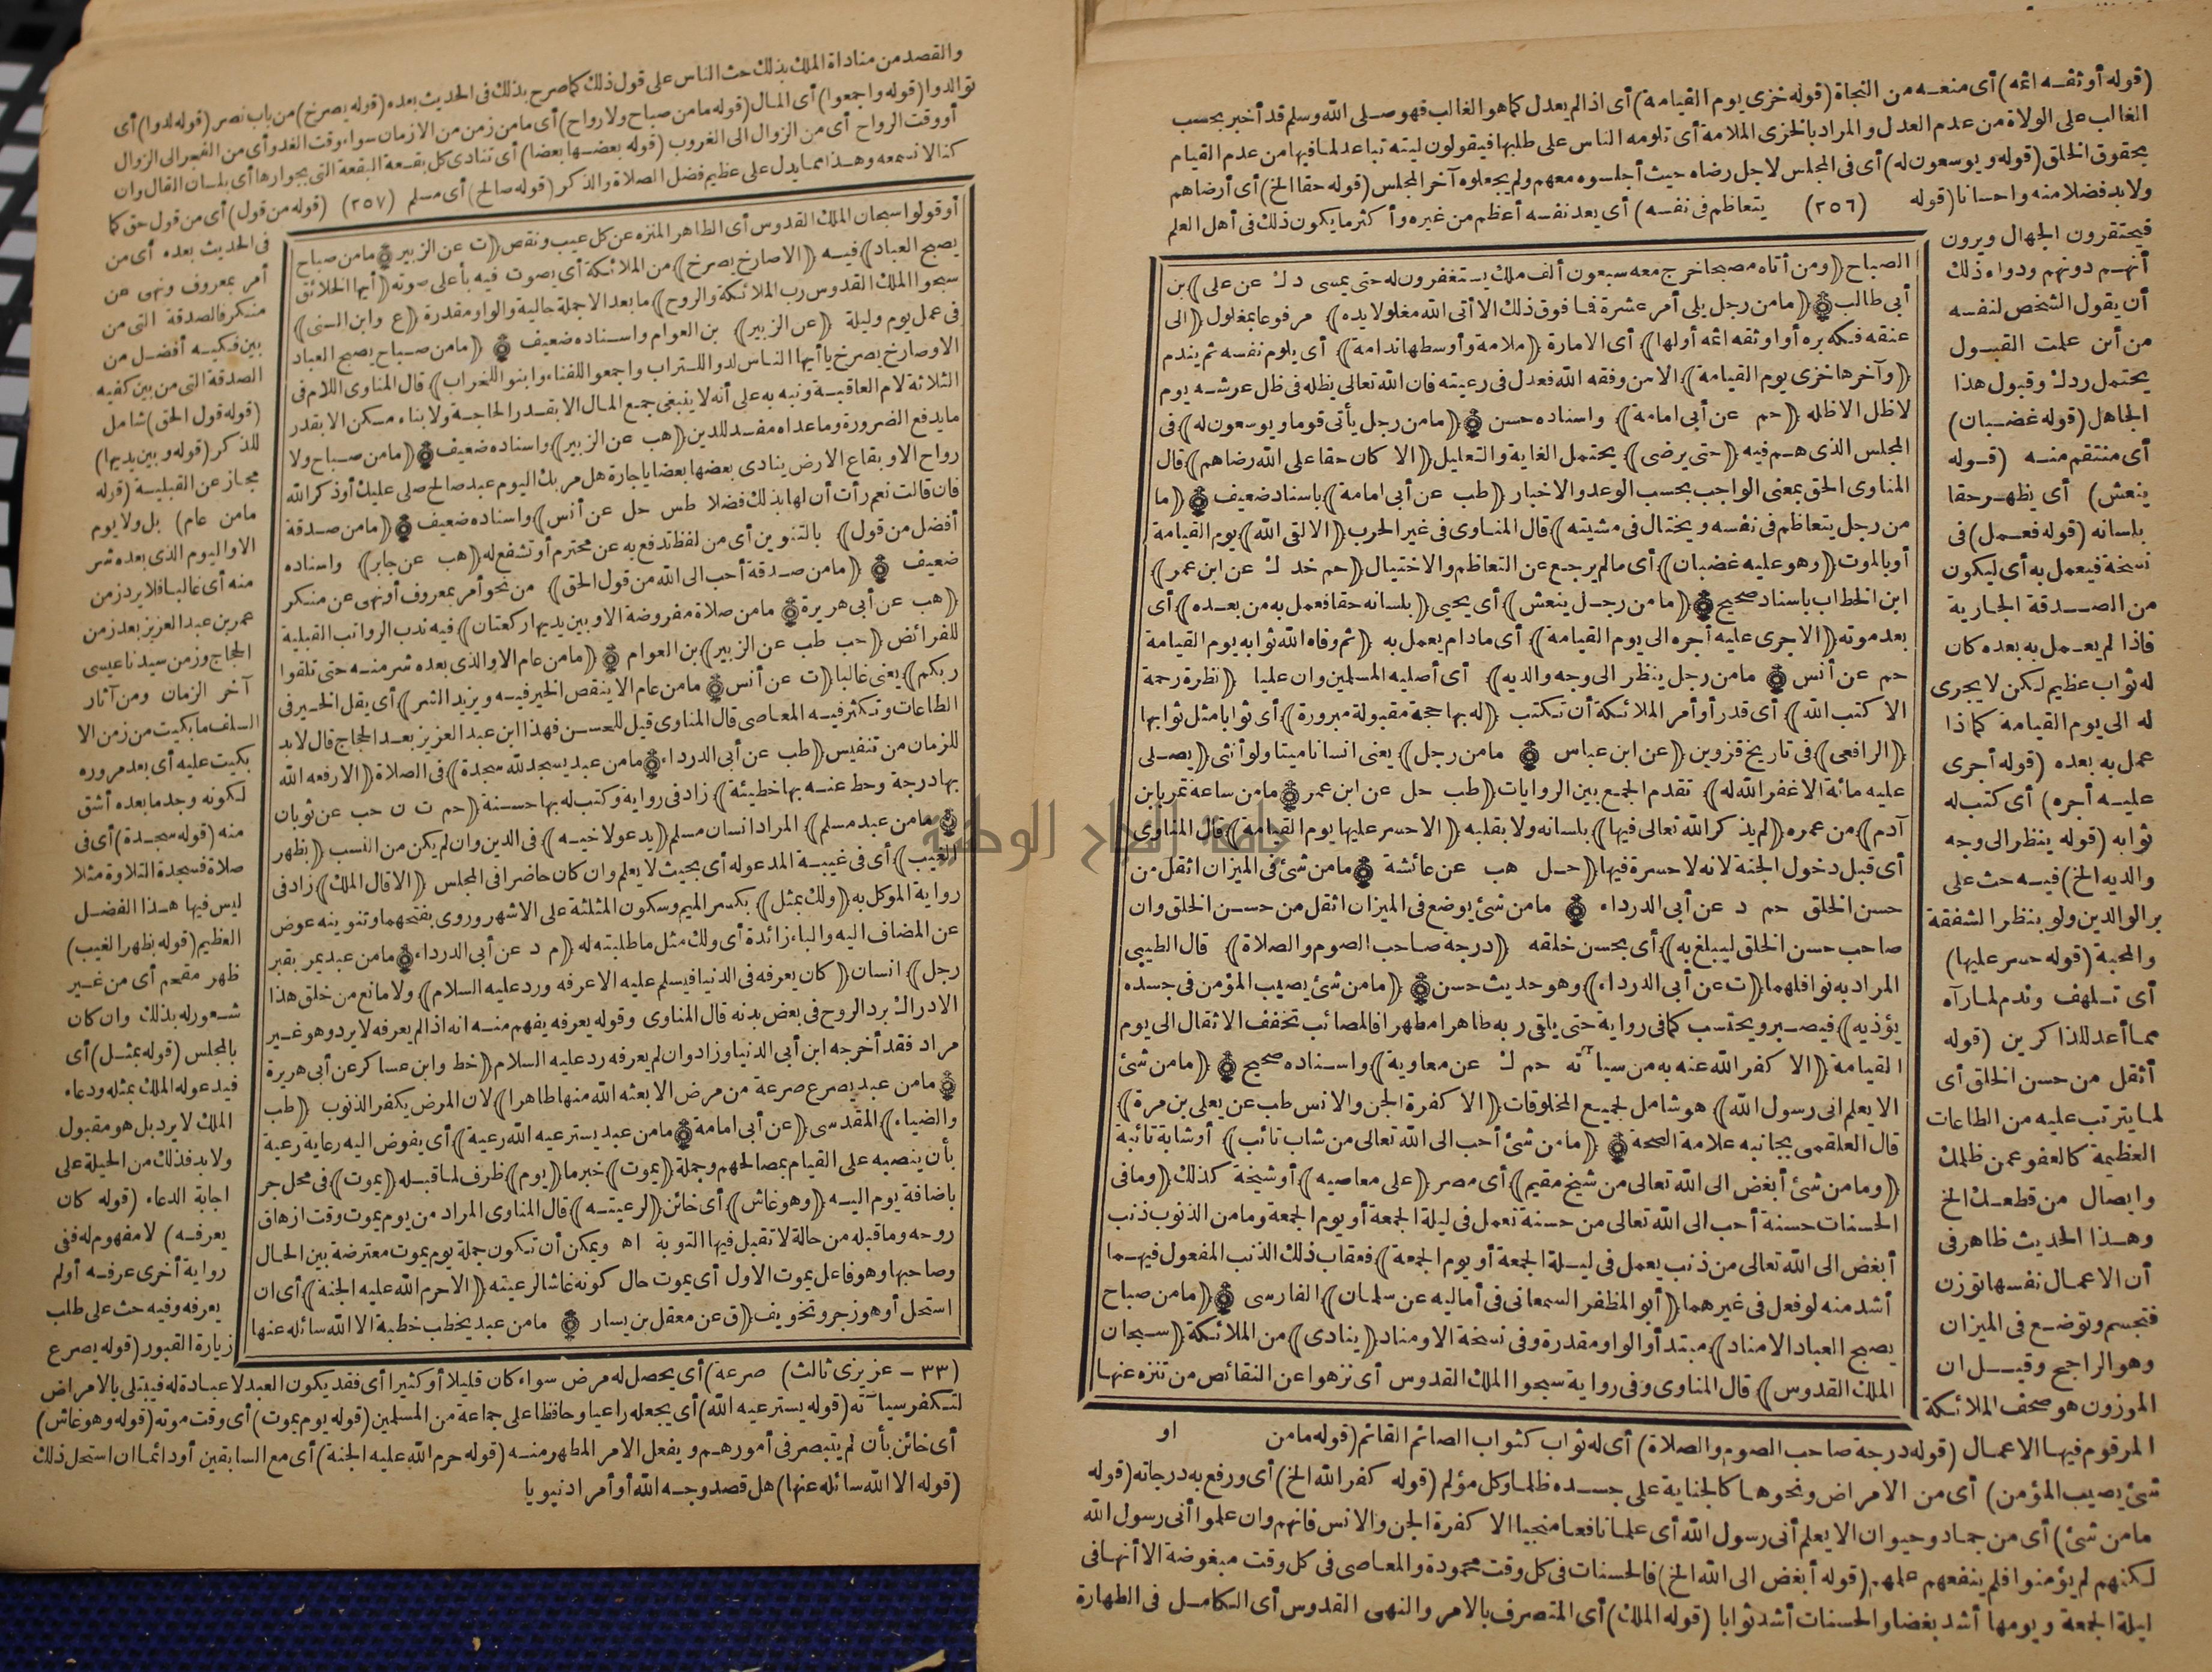 (قوله أوثقه اثمه) أى منعه من النجاة (قوله خزى يوم القيامة) أى اذا لم يعدل كما هو الغالب فهو صلى الله وسلم قد أخبر بحسب
الغالب على الولاة من عدم العدل والمراد بالخزى الملامة أى تلومه الناس على طلبها فيقولون ليته تباعد لما فيها من عدم القيام
بحقوق الخلق (قوله ويوسعون له) أى فى المجلس لاجل رضاه حيث أجلسوه معهم ولم يجعلوه آخر المجلس (قوله حقا الخ) أى أرضاهم
ولا بد فضلا منه واحسانا (قوله (٢٥٦) يتعاظم فى نفسه) أى يعد نفسه أعظم من غيره وأكثر ما يكون ذلك فى أهل العلم
فيحتقرون الجهال ويرون
أنهم دونهم ودواء ذلك
أن يقول الشخص لنفسه
من أين علمت القبول
يحتمل ردك وقبول هذا
الجاهل (قوله غضبان)
أى منتقم منه (قوله
ينعش) أى يظهر حقا
بلسانه (قوله فعمل) فى
نسخة فيعمل به أى ليكون
من الصدقة الجارية
فاذا لم يعمل به بعده كان
له ثواب عظيم لكن لا يجرى
له الى يوم القيامة كما ذا
عمل به بعده (قوله أجرى
عليه أجره) أى كتب له
ثوابه (قوله ينظر الى وجه
والديه الخ) فيه حث على
بر الوالدين ولو بنظر الشفقة
والمحبة (قوله حسر عليها)
أى تلهف وندم لما رآه
مما أعد للذاكرين (قوله
أثقل من حسن الخلق أى
لما يترتب عليه من الطاعات
العظيمة كالعفو عمن ظلمك
وايصال من قطعك الخ
وهذا الحديث ظاهر فى
أن الاعمال نفسها توزن
فتجسم وتوضع فى الميزان
وهو الراجح وقيل ان
الموزون هو صحف الملائكة
الصباح (ومن أتاه مصبحا خرج معه سبعون ألف ملك يستغفرون له حتى يمسى د ك عن على) بن
أبى طالب (ما من رجل يلى أمر عشرة فما فوق ذلك الا أتى الله مغلولا يده) مرفوعا بمغلول (الى
عنقه فكه بره أو أوثقه اثمه أولها) أى الامارة (ملامة وأوسطها ندامة) أى يلوم نفسه ثم يندم
(وآخرها خزى يوم القيامة) الا من وفقه الله فعدل فى رعيته فان الله تعالى يظله فى ظل عرشه يوم
لا ظل الا ظله (حم عن أبى امامة) واسناده حسن (ما من رجل يأتى قوما ويوسعون له) فى
المجلس الذى هم فيه (حتى يرضى) يحتمل الغاية والتعليل (الا كان حقا على الله رضاهم) قال
المناوى الحق بمعنى الواجب بحسب الوعد والاخبار (طب عن أبى امامة) باسناد ضعيف (ما
من رجل يتعاظم فى نفسه ويختال فى مشيته) قال المناوى فى غير الحرب (الا لقى الله) يوم القيامة
أو بالموت (وهو عليه غضبان) أى ما لم يرجع عن التعاظم والاختيال (حم خد ك عن ابن عمر)
ابن الخطاب باسناد صحيح (ما من رجل ينعش) أى يحيى (بلسانه حقا فعمل به من بعده) أى
بعد موته (الا جرى عليه أجره الى يوم القيامة) أى مادام يعمل به (ثم وفاه الله ثوابه يوم القيامة
حم عن أنس ما من رجل ينظر الى وجه والديه) أى أصليه المسلمين وان عليا (نظرة رحمة
الا كتب الله) أى قدر أو أمر الملائكة أن تكتب (له بها حجة مقبولة مبرورة) أى ثوابا مثل ثوابها
(الرافعى) فى تاريخ قزوين (عن ابن عباس ما من رجل) يعنى انسانا ميتا ولو أنثى (يصلى
عليه مائة الا غفر الله له) تقدم الجمع بين الروايات (طب حل عن ابن عمر ما من ساعة تمر بابن
آدم) من عمره (لم يذكر الله تعالى فيها) بلسانه ولا بقلبه (الا حسر عليها يوم القيامة) قال المناوى
أى قبل دخول الجنة لانه لا حسرة فيها (حل هب عن عائشة ما من شئ فى الميزان اثقل من
حسن الخلق حم د عن أبى الدرداء ما من شئ يوضع فى الميزان اثقل من حسن الخلق وان
صاحب حسن الخلق ليبلغ به) أى بحسن خلقه (درجة صاحب الصوم والصلاة) قال الطيبى
المراد به نوافلهما (ت عن أبى الدرداء) وهو حديث حسن (ما من شئ يصيب المؤمن فى جسده
يؤذيه) فيصبر ويحتسب كما فى رواية حتى يلقى ربه طاهرا مطهرا فالمصائب تخفف الاثقال الى يوم
القيامة (الا كفر الله عنه به من سيآته حم ك عن معاوية) واسناده صحيح (ما من شئ
الا يعلم انى رسول الله) هو شامل لجميع المخلوقات (الا كفرة الجن والانس طب عن يعلى بن مرة)
قال العلقمى بجانبه علامة الصحة (ما من شئ أحب الى الله تعالى من شاب تائب) أو شابة تائبة
(وما من شئ أبغض الى الله تعالى من شيخ مقيم) أى مصر (على معاصيه) أو شيخة كذلك (وما فى
الحسنات حسنة أحب الى الله تعالى من حسنة تعمل فى ليلة الجمعة أو يوم الجمعة وما من الذنوب ذنب
أبغض الى الله تعالى من ذنب يعمل فى ليلة الجمعة أو يوم الجمعة) فعقاب ذلك الذنب المفعول فيهما
أشد منه لو فعل فى غيرهما (أبو المظفر السمعانى فى أماليه عن سلمان) الفارسى (ما من صباح
يصبح العباد الا مناد) مبتدأ والواو مقدرة وفى نسخة الا ومناد (ينادى) من الملائكة (سبحان
الملك القدوس) قال المناوى وفى رواية سبحوا الملك القدوس أى نزهوا عن النقائص من تنزه عنها
او
المرقوم فيها الاعمال (قوله درجة صاحب الصوم والصلاة) أى له ثواب كثواب الصائم القائم (قوله ما من
شئ يصيب المؤمن) أى من الامراض ونحوها كالجناية على جسده ظلما وكل مؤلم (قوله كفر الله الخ) أى ورفع به درجاته (قوله
ما من شئ) أى من جماد وحيوان الا يعلم أنى رسول الله أى علما نافعا منجيا الا كفرة الجن والانس فانهم وان علموا أنى رسول الله
لكنهم لم يؤمنوا فلم ينفعهم علمهم (قوله أبغض الى الله الخ) فالحسنات فى كل وقت محمودة والمعاصى فى كل وقت مبغوضة الا أنها فى
ليلة الجمعة ويومها أشد بغضا والحسنات أشد ثوابا (قوله الملك) أى المتصرف بالامر والنهى القدوس أى الكامل فى الطهارة
والقصد من مناداة الملك بذلك حث الناس على قول ذلك كما صرح بذلك فى الحديث بعده (قوله يصرخ) من باب نصر (قوله لدوا) أى
توالدوا (قوله واجمعوا) أى المال (قوله ما من صباح ولا رواح) أى ما من زمن من الازمان سواء وقت الغدو أى من الفجر الى الزوال
أو وقت الرواح أى من الزوال الى الغروب (قوله بعضها بعضا) أى تنادى كل بقعة البقعة التى بجوارها أى بلسان القال وان
كنا لا نسمعه وهذا مما يدل على عظيم فضل الصلاة والذكر (قوله صالح) أى مسلم (٢٥٧) (قوله من قول) أى من قول حق كما
فى الحديث بعده أى من
أمر بمعروف ونهى عن
منكر فالصدقة التى من
بين فكيه أفضل من
الصدقة التى من بين كفيه
(قوله قول الحق) شامل
للذكر (قوله وبين يديها)
مجاز عن القبلية (قوله
ما من عام) بل ولا يوم
الا واليوم الذى بعده شر
منه أى غالبا فلا يرد زمن
عمر بن عبد العزيز بعد زمن
الحجاج وزمن سيدنا عيسى
آخر الزمان ومن آثار
السلف ما بكيت من زمن الا
بكيت عليه أى بعد مروره
لكونه وجد ما بعده أشق
منه (قوله سجدة) أى فى
صلاة فسجدة التلاوة مثلا
ليس فيها هذا الفضل
العظيم (قوله بظهر الغيب)
ظهر مقحم أى من غير
شعور له بذلك وان كان
بالمجلس (قوله بمثل) أى
فيدعو له الملك بمثله ودعاء
الملك لا يرد بل هو مقبول
ولا بد فذلك من الحيلة على
اجابة الدعاء (قوله كان
يعرفه) لا مفهوم له ففى
رواية أخرى عرفه أو لم
يعرفه وفيه حث على طلب
زيارة القبور (قوله يصرع
أو قولوا سبحان الملك القدوس أى الطاهر المنزه عن كل عيب ونقص (ت عن الزبير ما من صباح
يصبح العباد) فيه (الا صارخ يصرخ) من الملائكة أى يصوت فيه بأعلى صوته (أيها الخلائق
سبحوا الملك القدوس رب الملائكة والروح) ما بعد الا جملة حالية والواو مقدرة (ع وابن السنى)
فى عمل يوم وليلة (عن الزبير) بن العوام واسناده ضعيف (ما من صباح يصبح العباد
الا وصارخ يصرخ يا أيها الناس لدوا للتراب واجمعوا للفناء وابنوا للخراب) قال المناوى اللام فى
الثلاثة لام العاقبة ونبه به على أنه لا ينبغى جمع المال الا بقدر الحاجة ولا بناء مسكن الا بقدر
ما يدفع الضرورة وما عداه مفسد للدين (هب عن الزبير) واسناده ضعيف (ما من صباح ولا
رواح الا وبقاع الارض ينادى بعضها بعضا يا جارة هل مر بك اليوم عبد صالح صلى عليك أو ذكر الله
فان قالت نعم رأت أن لها بذلك فضلا طس حل عن أنس) واسناده ضعيف (ما من صدقة
أفضل من قول) بالتنوين أى من لفظ تدفع به عن محترم أو تشفع له (هب عن جابر) واسناده
ضعيف (ما من صدقة أحب الى الله من قول الحق) من نحو أمر بمعروف أو نهى عن منكر
(هب عن أبى هريرة ما من صلاة مفروضة الا وبين يديها ركعتان) فيه ندب الرواتب القبلية
للفرائض (حب طب عن الزبير) بن العوام (ما من عام الا والذى بعده شر منه حتى تلقوا
ربكم) يعنى غالبا (ت عن أنس ما من عام الا ينقص الخير فيه ويزيد الشر) أى يقل الخير فى
الطاعات وتكثر فيه المعاصى قال المناوى قيل للحسن فهذا ابن عبد العزيز بعد الحجاج قال لا بد
للزمان من تنفيس (طب عن أبى الدرداء ما من عبد يسجد لله سجدة) فى الصلاة (الا رفعه الله
بها درجة وحط عنه بها خطيئة) زاد فى رواية وكتب له بها حسنة (حم ت ن حب عن ثوبان
ما من عبد مسلم) المراد انسان مسلم (يدعو لاخيه) فى الدين وان لم يكن من النسب (بظهر
الغيب) أى فى غيبة المدعو له أى بحيث لا يعلم وان كان حاضرا فى المجلس (الا قال الملك) زاد فى
رواية الموكل به (ولك بمثل) بكسر الميم وسكون المثلثة على الاشهر وروى بفتحهما وتنوينه عوض
عن المضاف اليه والباء زائدة أى ولك مثل ما طلبته له (م د عن أبى الدرداء ما من عبد يمر بقبر
رجل) انسان (كان يعرفه فى الدنيا فيسلم عليه الا عرفه ورد عليه السلام) ولا مانع من خلق هذا
الادراك برد الروح فى بعض بدنه قال المناوى وقوله يعرفه يفهم منه انه اذا لم يعرفه لا يرد وهو غير
مراد فقد أخرجه ابن أبى الدنيا وزاد وان لم يعرفه رد عليه السلام (خط وابن عساكر عن أبى هريرة
ما من عبد يصرع صرعة من مرض الا بعثه الله منها طاهرا) لان المرض يكفر الذنوب (طب
والضياء) المقدسى (عن أبى امامة ما من عبد يسترعيه الله رعية) أى يفوض اليه رعاية رعية
بأن ينصبه على القيام بمصالحهم وجملة (يموت) خبر ما (يوم) ظرف لما قبله (يموت) فى محل جر
باضافة يوم اليه (وهو غاش) أى خائن (لرعيته) قال المناوى المراد من يوم يموت وقت ازهاق
روحه وما قبله من حالة لا تقبل فيها التوبة اه ويمكن أن تكون جملة يوم يموت معترضة بين الحال
وصاحبها وهو فاعل يموت الاول أى يموت حال كونه غاشا لرعيته (الا حرم الله عليه الجنة) أى ان
استحل أو هو زجر وتخويف (ق عن معقل بن يسار ما من عبد يخطب خطبة الا الله سائله عنها
(٣٣ - عزيزى ثالث) صرعة) أى يحصل له مرض سواء كان قليلا أو كثيرا أى فقد يكون العبد لا عبادة له فيبتلى بالامراض
لتكفر سيآته (قوله يسترعيه الله) أى يجعله راعيا وحافظا على جماعة من المسلمين (قوله يوم يموت) أى وقت موته (قوله وهو غاش)
أى خائن بأن لم يتبصر فى أمورهم ويفعل الامر المطهر منه (قوله حرم الله عليه الجنة) أى مع السابقين أو دائما ان استحل ذلك
(قوله الا الله سائله عنها) هل قصد وجه الله أو أمرا دنيويا